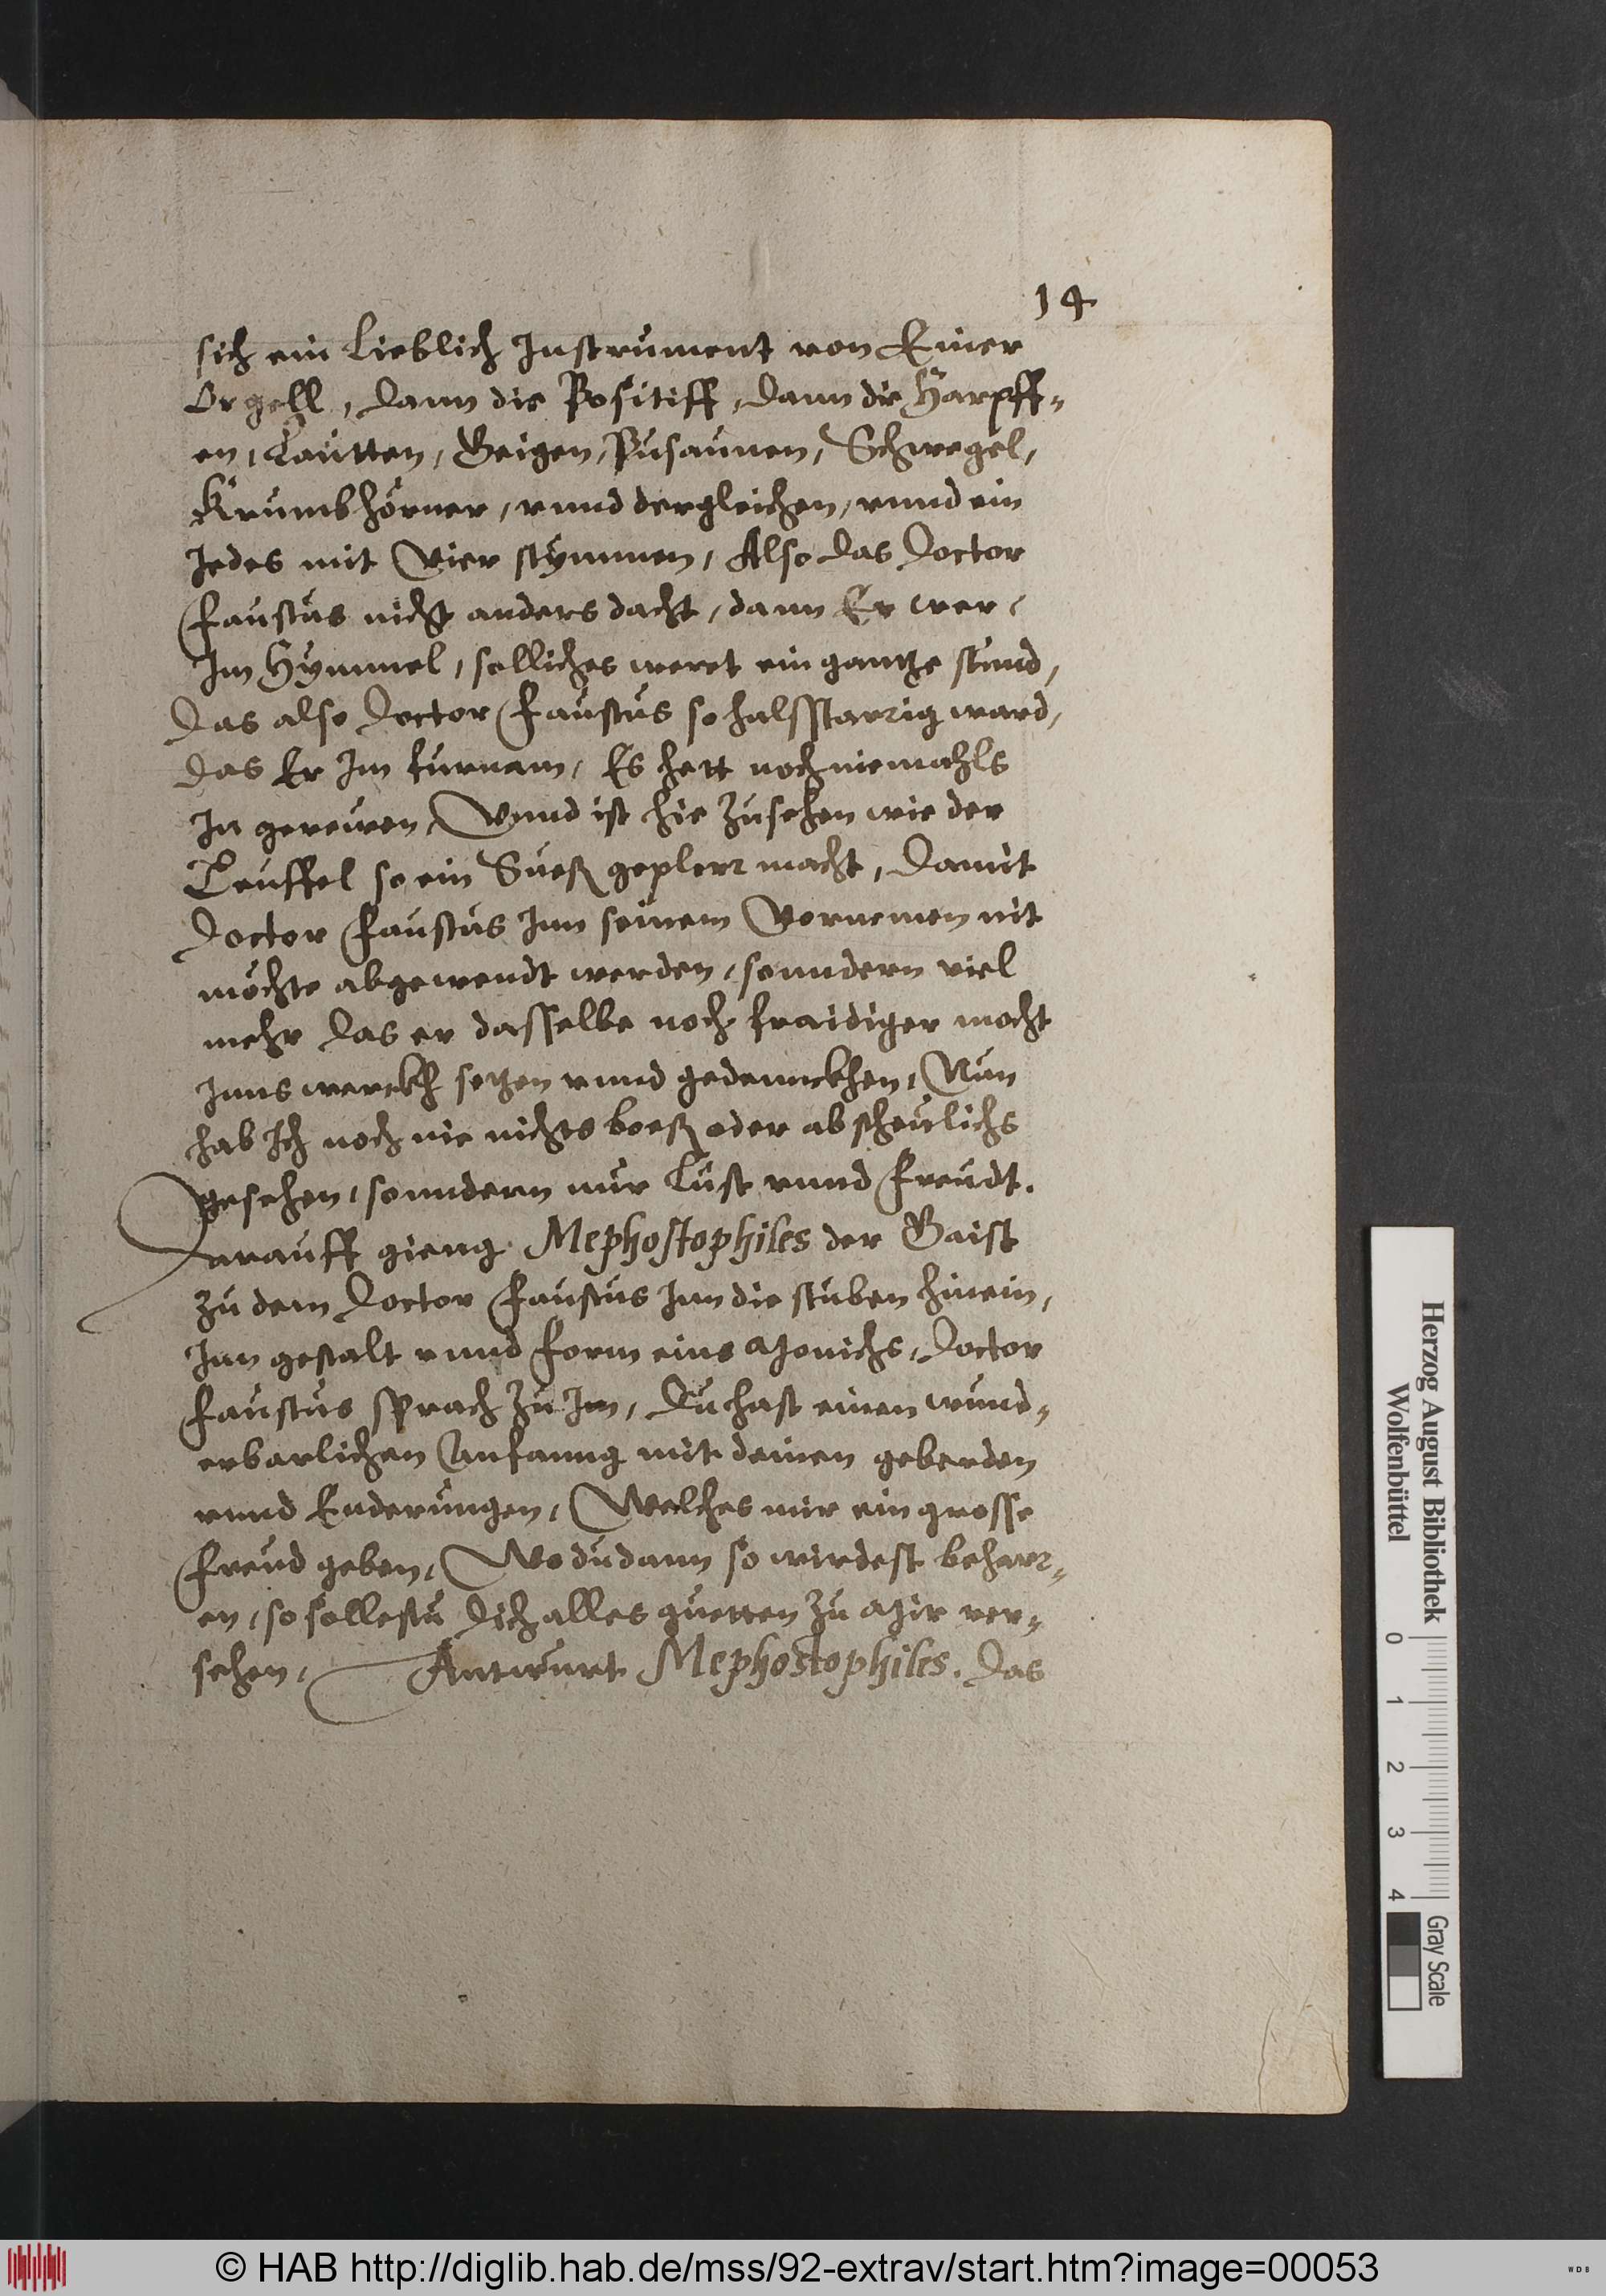 14
sich ein Lieblich Instrument von Einer
Orgell, dann die Positiff, dann die Harpff-
en, Lautten, Geigen, Pusaunen, Schwegel,
Krumbhörner, vnnd dergleichen, vnnd ein
Jedes mit Vier stymmen, Also das Doctor
Faustus nicht anders dacht, dann Er wer
Im Hymmel, solliches weret ein gantze stund,
Das also Doctor Faustus so halsstarrig ward,
das Er Im furnam, Es hett noch niemahls
In gerewen, Vnnd ist hie Zusehen wie der
Teuffel so ein Sueß geplerr macht, Damit
Doctor Faustus Inn seinem Vornemen nit
möchte abgewendt werden, sonndern viel
mehr das er dasselbe noch fraidiger mocht
Inns werckh setzen vnnd gedennckhen, Nun
hab Ich noch nie nichts boeß oder abscheulichs
gesehen, sonndern nur Lust vnnd Freudt.
Darauff gieng Mephostophiles der Gaist
Zu dem Doctor Faustus Inn die stuben hinein,
Inn gestalt vnnd form eins Monichs, Doctor
Faustus sprach Zu Im, Du hast einen wund-
erbarlichen Anfanng mit deinen geberden
vnnd Enderungen, Welches mir ein grosse
Freud geben, Wo du dann so wirdest beharr-
en, so sollestu dich alles guetten Zu Mir ver-
sehen, Antwurt Mephostophiles. Das
Herzog August Bibliothek
Wolfenbüttel
0 1 2 3 4
Gray Scale
© HAB http://diglib.hab.de/mss/92-extrav/start.htm?image=00053
WDB